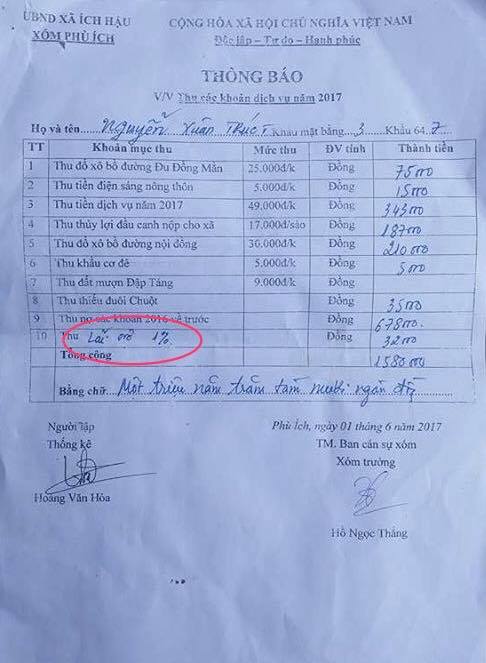 UBND XÃ ÍCH HẬU CỘNG HÒA XÃ HỘI CHỦ NGHĨA VIỆT NAM
XÓM PHÚ ÍCH Độc lập – Tự do – Hạnh phúc
THÔNG BÁO
V/V Thu các khoản dịch vụ năm 2017
Họ và tên.....Nguyễn Xuân Trúc Khẩu mặt bằng...3...Khẩu 64..7
TT Khoản mục thu Mức thu ĐV tính Thành tiền
1 Thu đổ xô bồ đường Đu Đồng Mǎn 25.000đ/k Đồng 75000
2 Thu tiền điện sáng nông thôn 5.000đ/k Đồng 15000
3 Thu tiền dịch vụ năm 2017 49.000đ/k Đồng 343000
4 Thu thủy lợi đầu canh nộp cho xã 17.000đ/sào Đồng 187000
5 Thu đổ xô bồ đường nội đồng 30.000đ/k Đồng 210000
6 Thu khẩu cơ đê 5.000đ/k Đồng 5000
7 Thu đất mượn Đập Tǎng 9.000đ/k Đồng
8 Thu thiếu đuôi Chuột Đồng 35000
9 Thu nợ các khoản 2016 về trước Đồng 678000
10 Thu Lãi 1% Đồng 32000
Tổng cộng 1580000
Bằng chữ...Một triệu năm trăm tám mươi ngàn đồng
Người lập Phù Ích, ngày 01 tháng 6 năm 2017
Thống kê TM. Ban cán sự xóm
Xóm trưởng
Hoàng Văn Hóa
Hồ Ngọc Thắng